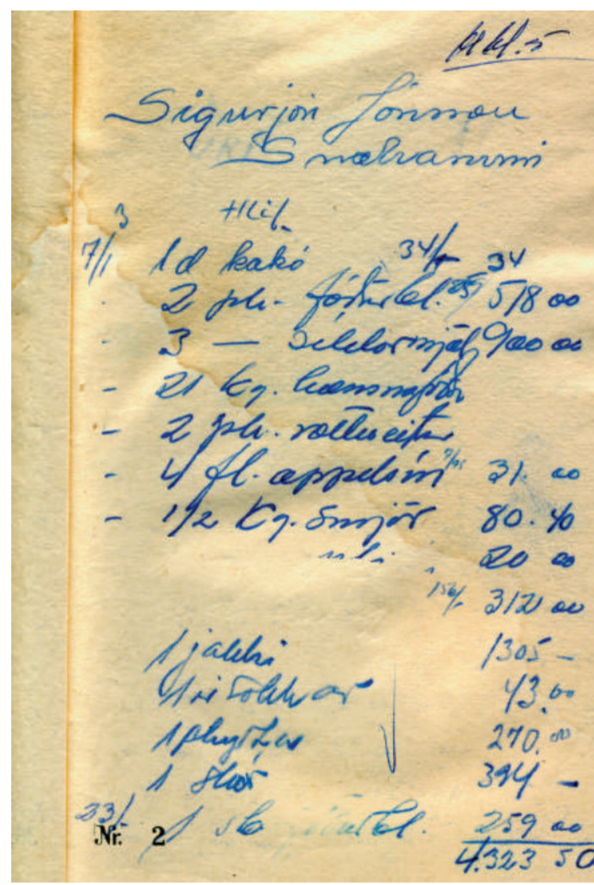 Sigurjón Jónsson
3
7/1 1 d kakó 34/- 34
2 pk. fóðurbl. 259/ 518 00
- 3 — síldarmjöl 900 00
- 21 kg. hænsnafóður
- 2 pk. rottueitur
- 4 fl. appelsín 31. 00
- 1/2 kg. Smjör 80. 40
20 00
156/- 312 00
1 jakki 1305 -
1 sokkar 43.00
1 skyrta 270.00
1 skór 394 -
23/- 1 sk fóðurbl. 259 00
Nr. 2
4.323 50